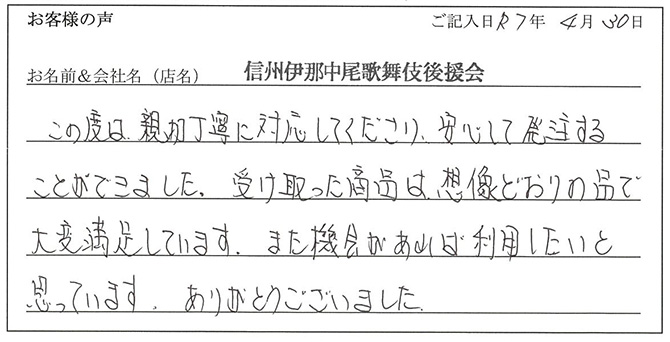 お客様の声 ご記入日 R7年 4月 30日
お名前&会社名（店名） 信州伊那中尾歌舞伎後援会
この度は、親切丁寧に対応してくださり、安心して発注する
ことができました。受け取った商品は、想像どおりの品で
大変満足しています。また機会があれば利用したいと
思っています。ありがとうございました。